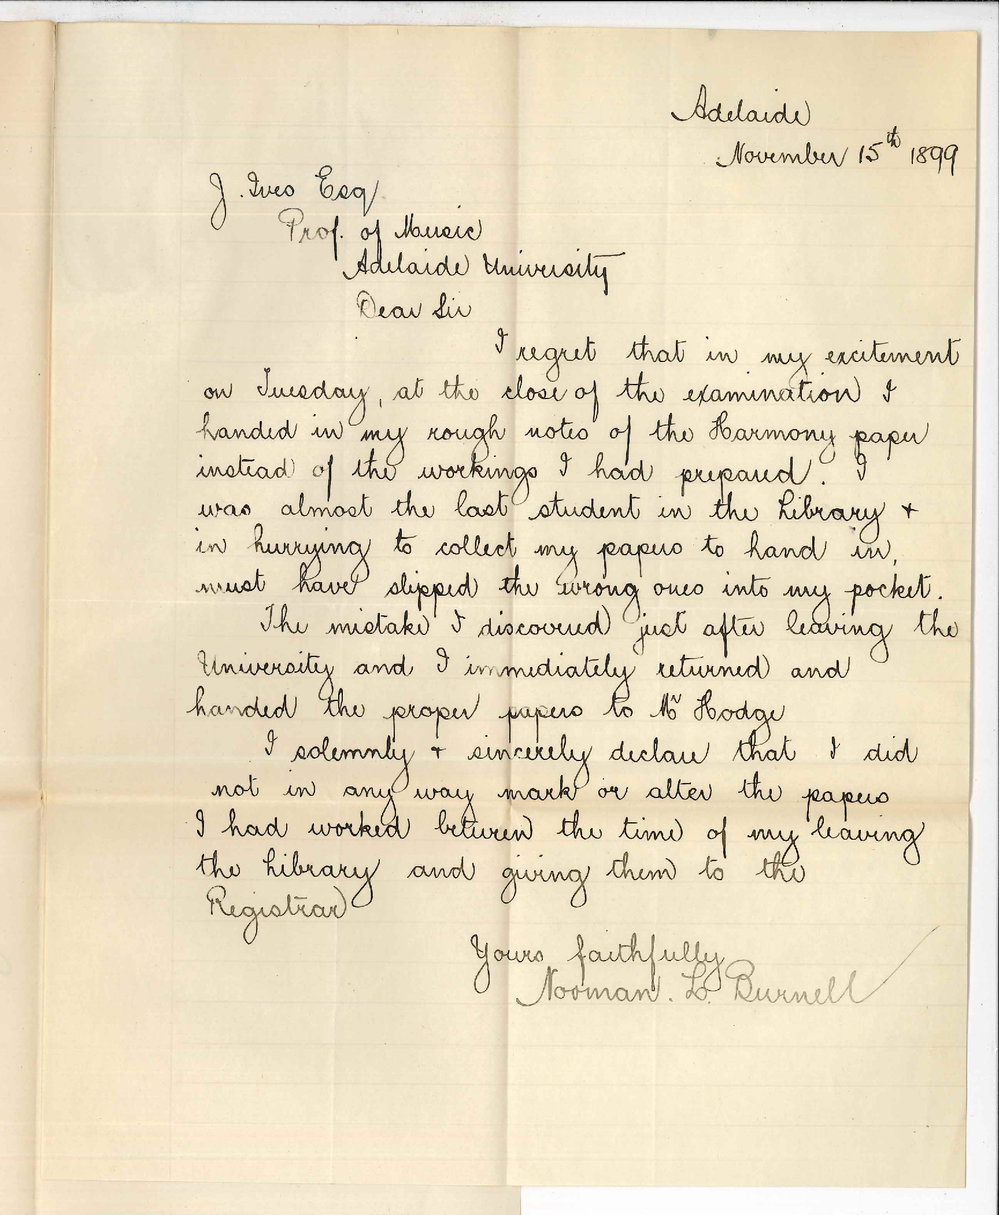 Adelaide
November 15th 1899
J. Ives Esq
Prof. of Music
Adelaide University
Dear Sir
I regret that in my excitement
on Tuesday, at the close of the examination I
handed in my rough notes of the Harmony paper
instead of the workings I had prepared. I
was almost the last student in the Library +
in hurrying to collect my papers to hand in,
must have slipped the wrong ones into my pocket.
The mistake I discovered just after leaving the
University and I immediately returned and
handed the proper papers to Mr Hodge
I solemnly + sincerely declare that I did
not in any way mark or alter the papers
I had worked between the time of my leaving
the Library and giving them to the
Registrar
Yours faithfully
Norman. L. Burnell